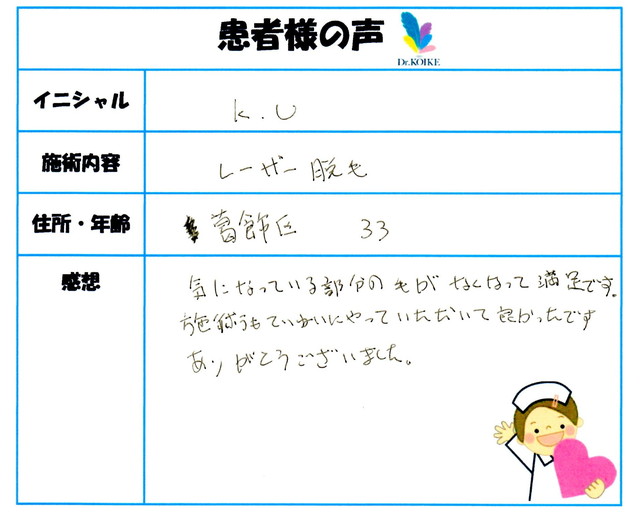 患者様の声
Dr.KOIKE
イニシャル
K.U
施術内容
レーザー脱毛
住所・年齢
葛飾区 33
感想
気になっている部分の毛がなくなって満足です。
施術もていねいにやっていただいて良かったです
ありがとうございました。